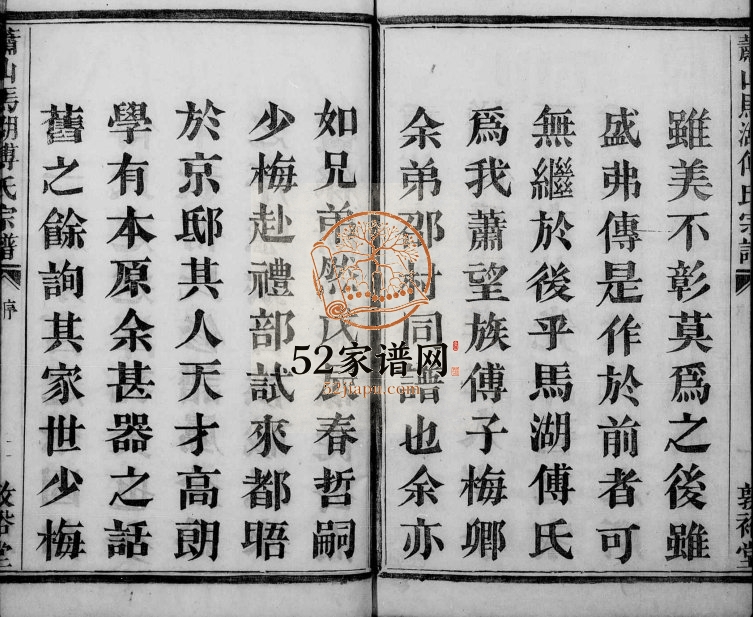 雖美不彰莫爲之後雖
盛弗傳是作於前者可
無繼於後乎馬湖傅氏
爲我蕭望族傅子梅卿
余弟邵村同譜也余亦
如兄弟春哲嗣
少梅赴禮部試來都晤
於京邸其人天才高朗
學有本原余甚器之話
舊之餘詢其家世少梅
蕭山馬湖傅氏宗譜
序
52家谱网
52jiapu.com